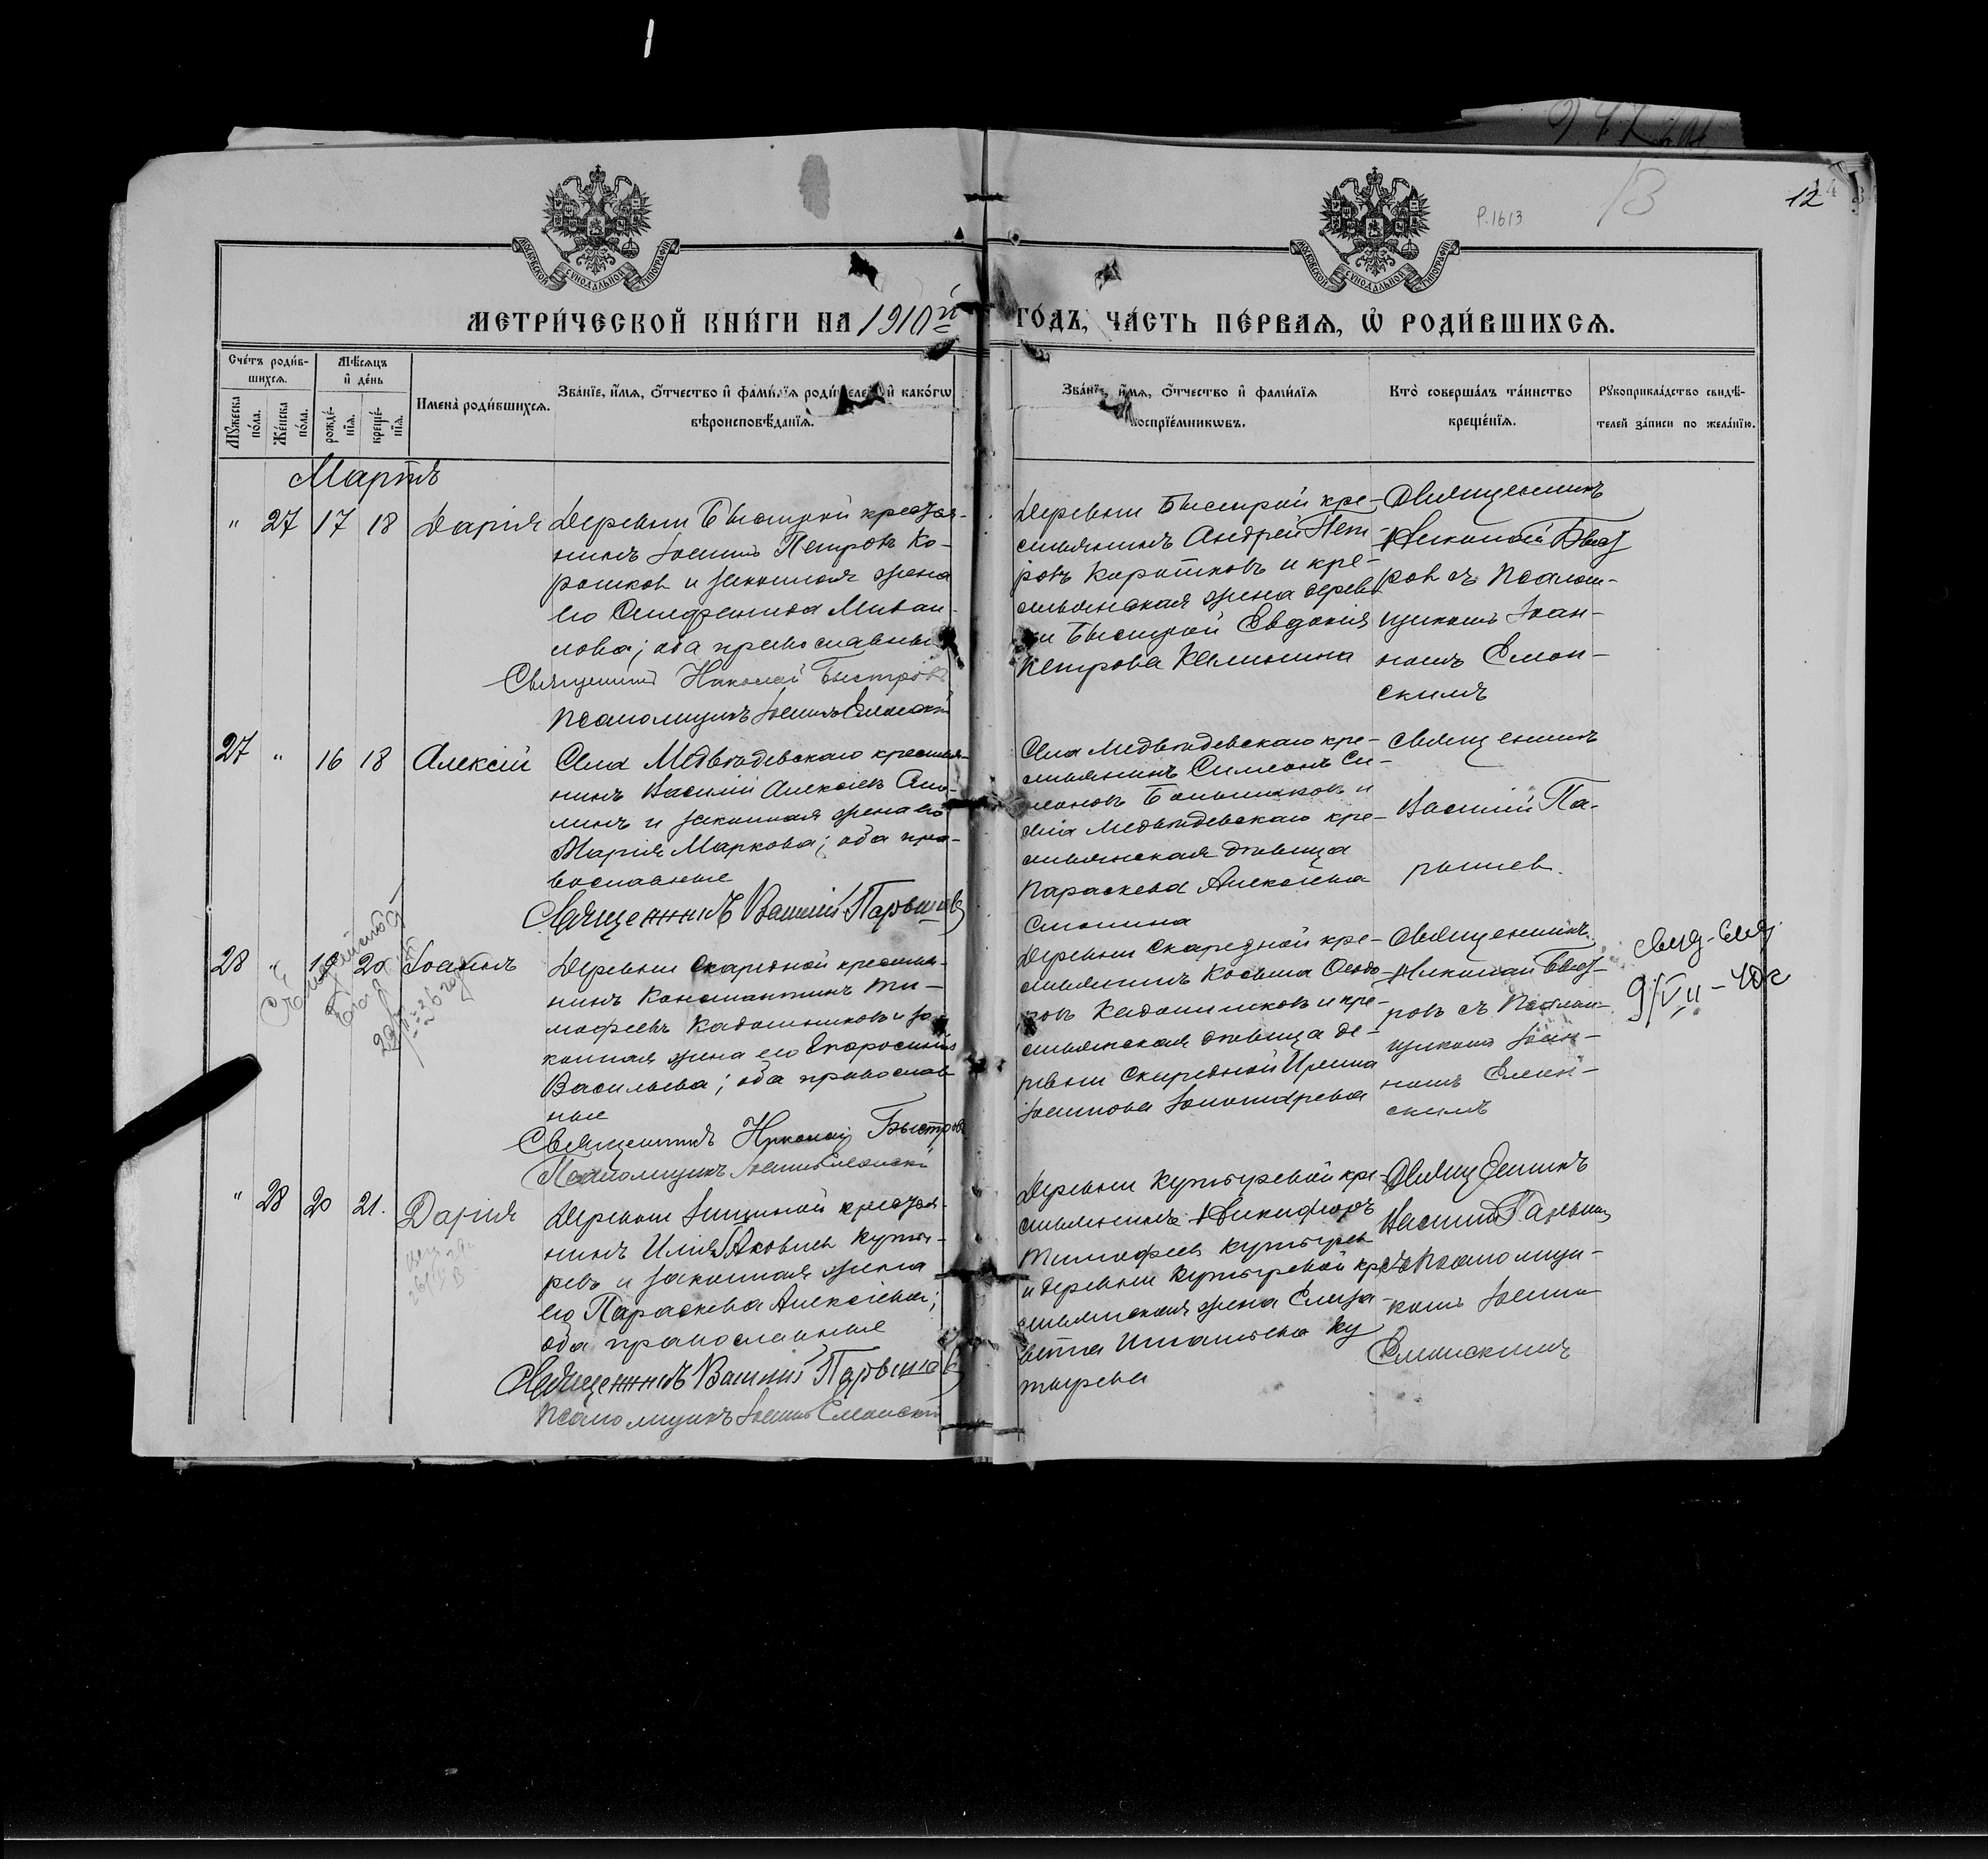 12
13
Р. 1613
МОСКОВСКОЙ СѴНОДАЛЬНОЙ ТИПОГРАФІИ
МОСКОВСКОЙ СѴНОДАЛЬНОЙ ТИПОГРАФІИ
МЕТРИ́ЧЕСКОЙ КНИ́ГИ НА 1910й ГО́ДЪ, ЧА́СТЬ ПЕ́РВАѦ, Ѡ҆ РОДИ́ВШИХСѦ.
Сче́тъ роди́в-
шихсѧ.
Мѣ́сѧцъ
и҆ де́нь
Мꙋ́жеска по́ла.
Же́нска по́ла.
рожде́-
нїѧ.
креще́-
нїѧ.
Имена̀ роди́вшихсѧ.
Зва́нїе, и҆́мѧ, ѻ҆́тчество и҆ фами́лїѧ роди́телей и҆ како́гѡ
вѣроисповѣ́данїѧ.
Зва́нїе, и҆́мѧ, ѻ҆́тчество и҆ фами́лїѧ
воспрїе́мникѡвъ.
Кто̀ соверша́лъ та́инство
креще́нїѧ.
Рꙋкоприкла́дство свидѣ́-
телей за́писи по жела́нїю.
Мартъ
" 27 17 18 Дарія
Деревни Быстрой крестья-
нинъ Іоаннъ Петровъ Ко-
ротков и законная жена
его
лова; оба православные
Священникъ Николай Быстровъ
Псаломщикъ Іоаннъ Елеонскій
Деревни Быстрой кре-
стьянинъ Андрей Пет-
ровъ Коротковъ и кре-
стьянская жена дерев
ни Быстрой Евдокія
Петрова Калинина
Священникъ
Николай Быст
ров съ Псалом-
щикомъ Іоан-
номъ Елеон-
скимъ
27 " 16 18 Алексій
Села Медвѣдевскаго крестья-
нинъ Василій Алексіевъ Сто-
линъ и законная жена его
Марія Маркова; оба пра-
вославные
Священникъ Василій Парышевъ
Села Медвѣдевскаго кре-
стьянинъ Симеонъ Си-
меоновъ Большаковъ и
села Медвѣдевскаго кре-
стьянская дѣвица
Параскева Алексіева
Священникъ
Василій Па-
рышев.
28 " 19 20 Іоаннъ
Деревни Скаредной крестья-
нинъ Константинъ Ти-
мофеевъ Кадошниковъ и за-
конная жена его Евфросинія
Васильева; оба православ
ные
Священникъ Николай Быстровъ
Псаломщикъ Іоаннъ Елеонскій
Деревни Скаредной кре-
стьянинъ Косьма Ѳеодо-
ровъ Кадошниковъ и кре-
стьянская дѣвица де-
ревни Скаредной Ирина
Іоаннова
Священникъ
Николай Быст-
ровъ съ Псалом-
щикомъ Іоан-
номъ Елеон-
скимъ
9/VII-40г
" 28 20 21. Дарія
Деревни крестья-
нинъ Илія Яковлев Куты-
ревъ и законная жена
его Параскева Алексіева;
оба православные
Священникъ Василій Парышевъ
Псаломщикъ Іоаннъ Елеонскій
Деревни Кутыревой кре-
стьянинъ Никифоръ
Тимофеев Кутырев
и деревни Кутыревой кре
стьянская жена Елиза-
вета Игнатьева Ку
тырева
Священникъ
Василій Парышев
съ Псаломщи-
комъ Іоанно
Елеонскимъ